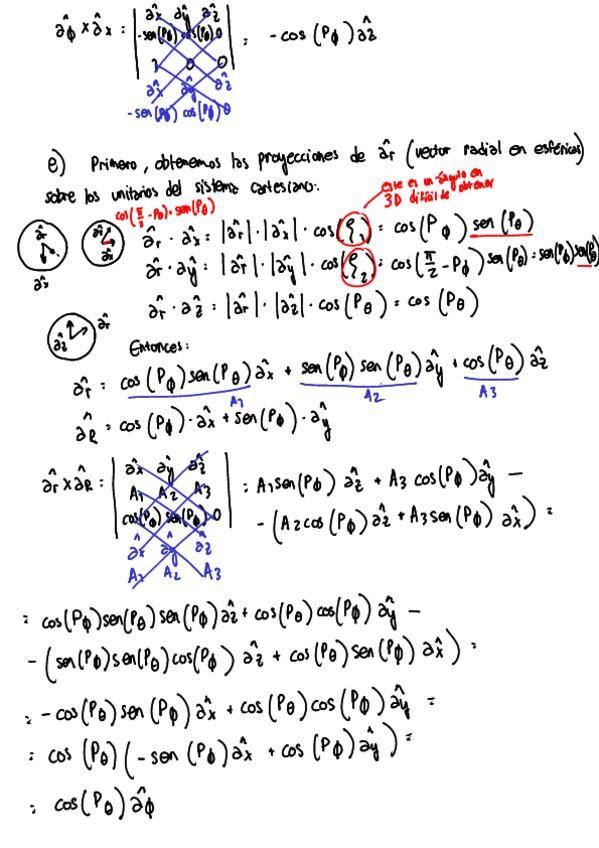 âϕ × âx = | âx ây âz | = -cos(Pϕ) âz
-sen(Pϕ) cos(Pϕ) 0
1 0 0
âx ây âz
-sen(Pϕ) cos(Pϕ) 0
e) Primero, obtenemos las proyecciones de âr (vector radial en esféricas)
sobre los unitarios del sistema cartesiano:
este es un ángulo en
3D difícil de obtener
cos(π/2 - Pθ) = sen(Pθ)
âr âx
âr · âx = |âr| · |âx| · cos(ξ1) = cos(Pϕ) sen(Pθ)
âr · ây = |âr| · |ây| · cos(ξ2) = cos(π/2 - Pϕ) sen(Pθ) = sen(Pϕ) sen(Pθ)
âr · âz = |âr| · |âz| · cos(Pθ) = cos(Pθ)
âz âr
Entonces:
âr = cos(Pϕ) sen(Pθ) âx + sen(Pϕ) sen(Pθ) ây + cos(Pθ) âz
A1 A2 A3
âR = cos(Pϕ) · âx + sen(Pϕ) · ây
âr × âR = | âx ây âz | = A1 sen(Pϕ) âz + A3 cos(Pϕ) ây -
A1 A2 A3
cos(Pϕ) sen(Pϕ) 0 - (A2 cos(Pϕ) âz + A3 sen(Pϕ) âx) =
âx ây âz
A1 A2 A3
= cos(Pϕ) sen(Pθ) sen(Pϕ) âz + cos(Pθ) cos(Pϕ) ây -
- (sen(Pϕ) sen(Pθ) cos(Pϕ) âz + cos(Pθ) sen(Pϕ) âx) =
= -cos(Pθ) sen(Pϕ) âx + cos(Pθ) cos(Pϕ) ây =
= cos(Pθ) (-sen(Pϕ) âx + cos(Pϕ) ây) =
= cos(Pθ) âϕ